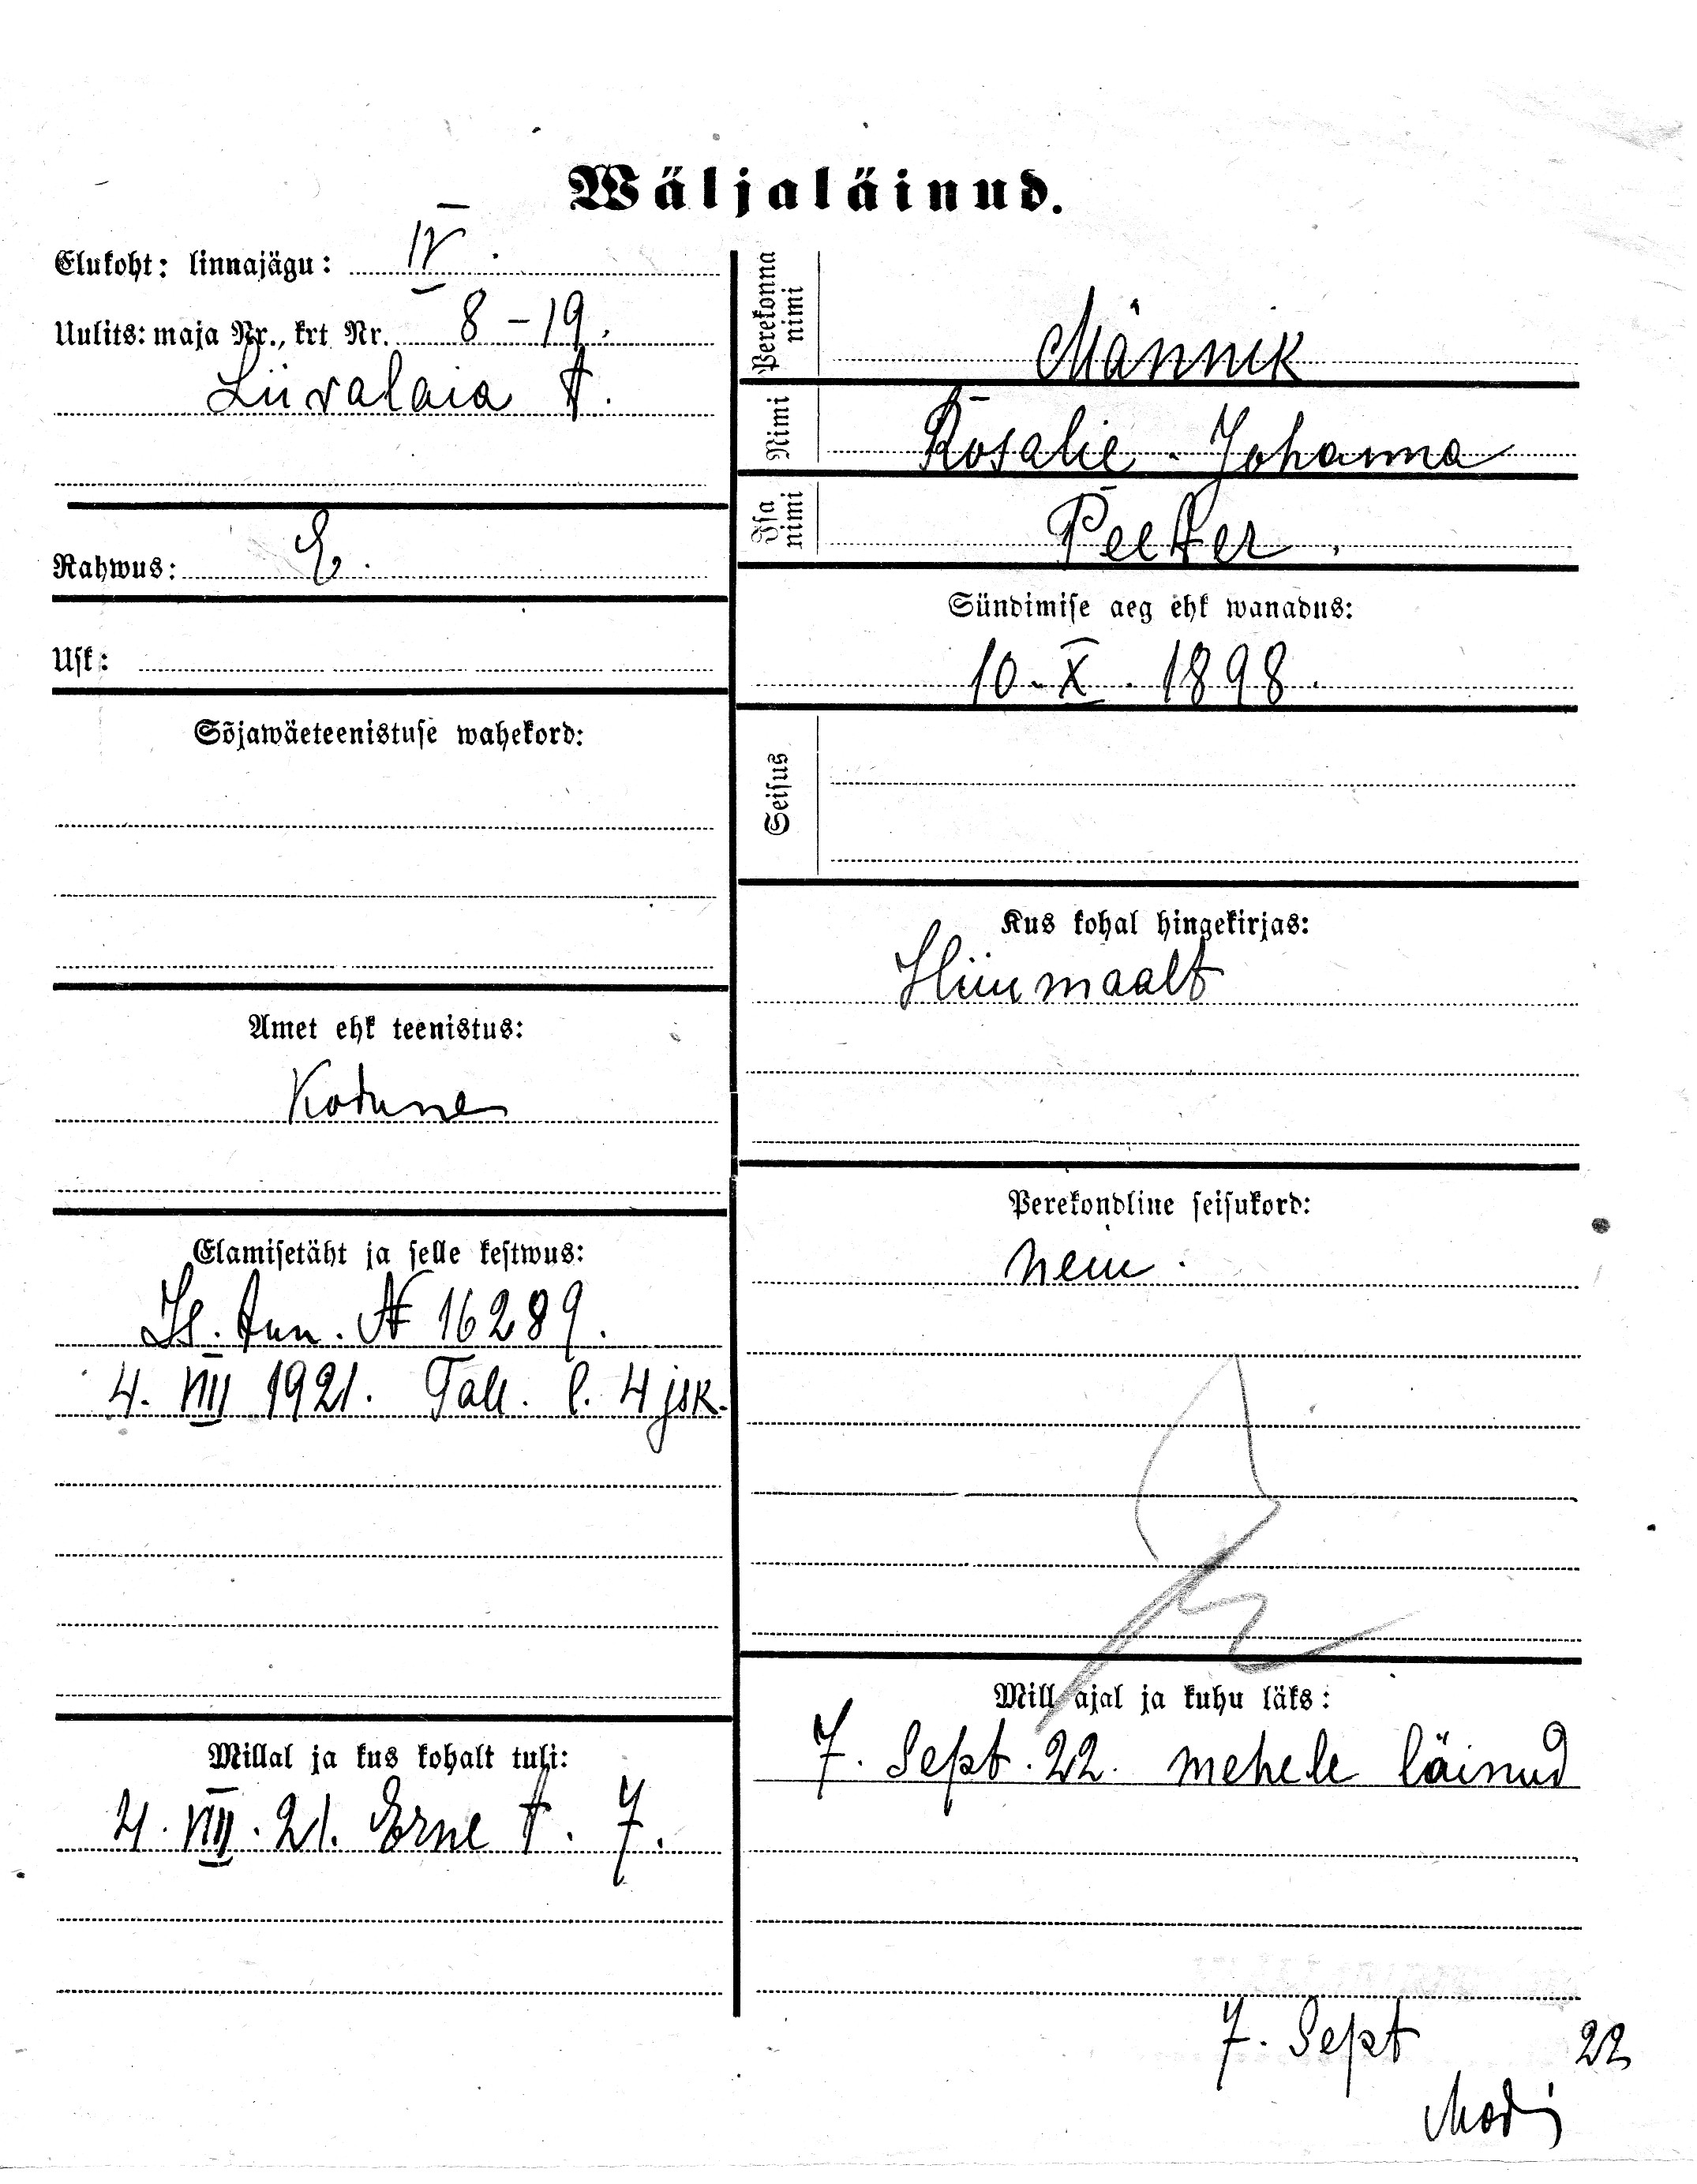 Wäljaläinud.
Elukoht: linnajägu: IV.
Uulits: maja Nr., krt Nr. 8-19.
Liivalaia t.
Rahwus: E.
Usk:
Sõjawäeteenistuse wahekord:
Amet ehk teenistus:
Kodune
Elamisetäht ja selle kestwus:
Is. tun. № 16289.
4. VIII 1921. Tall. l. 4 jsk.
Millal ja kus kohalt tuli:
4. VIII. 21. Erne t. 7.
Perekonna nimi
Männik
Nimi
Rosalie-Johanna
Isa nimi
Peeter.
Sündimise aeg ehk wanadus:
10. X. 1898.
Seisus
Kus kohal hingekirjas:
Hiiumaalt
Perekondline seisukord:
neiu.
Mill ajal ja kuhu läks:
7. Sept. 22. mehele läinud
7. Sept 22